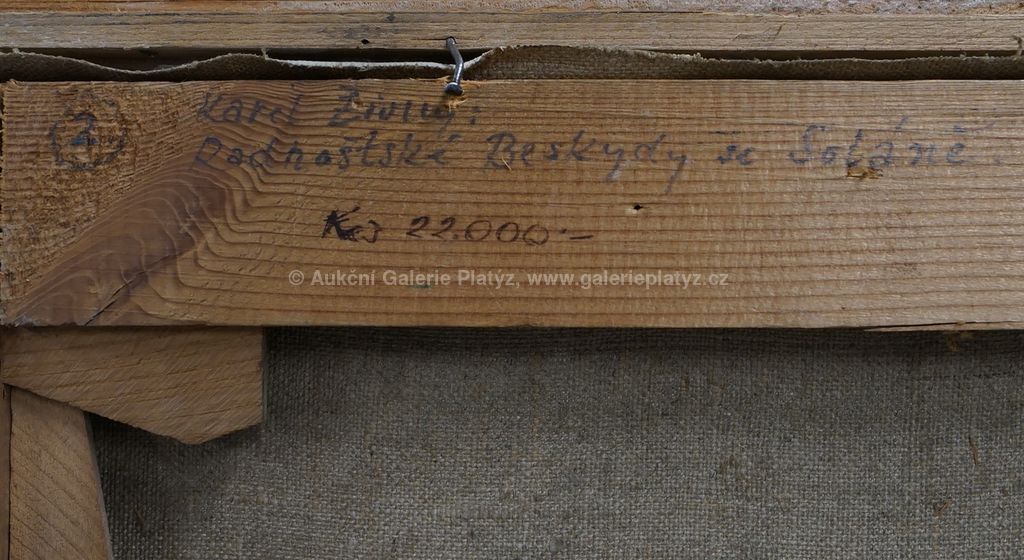 2
Karel Živný:
Radhoštské Beskydy se Soláně.
Kčs 22.000.–
© Aukční Galerie Platýz, www.galerieplatyz.cz